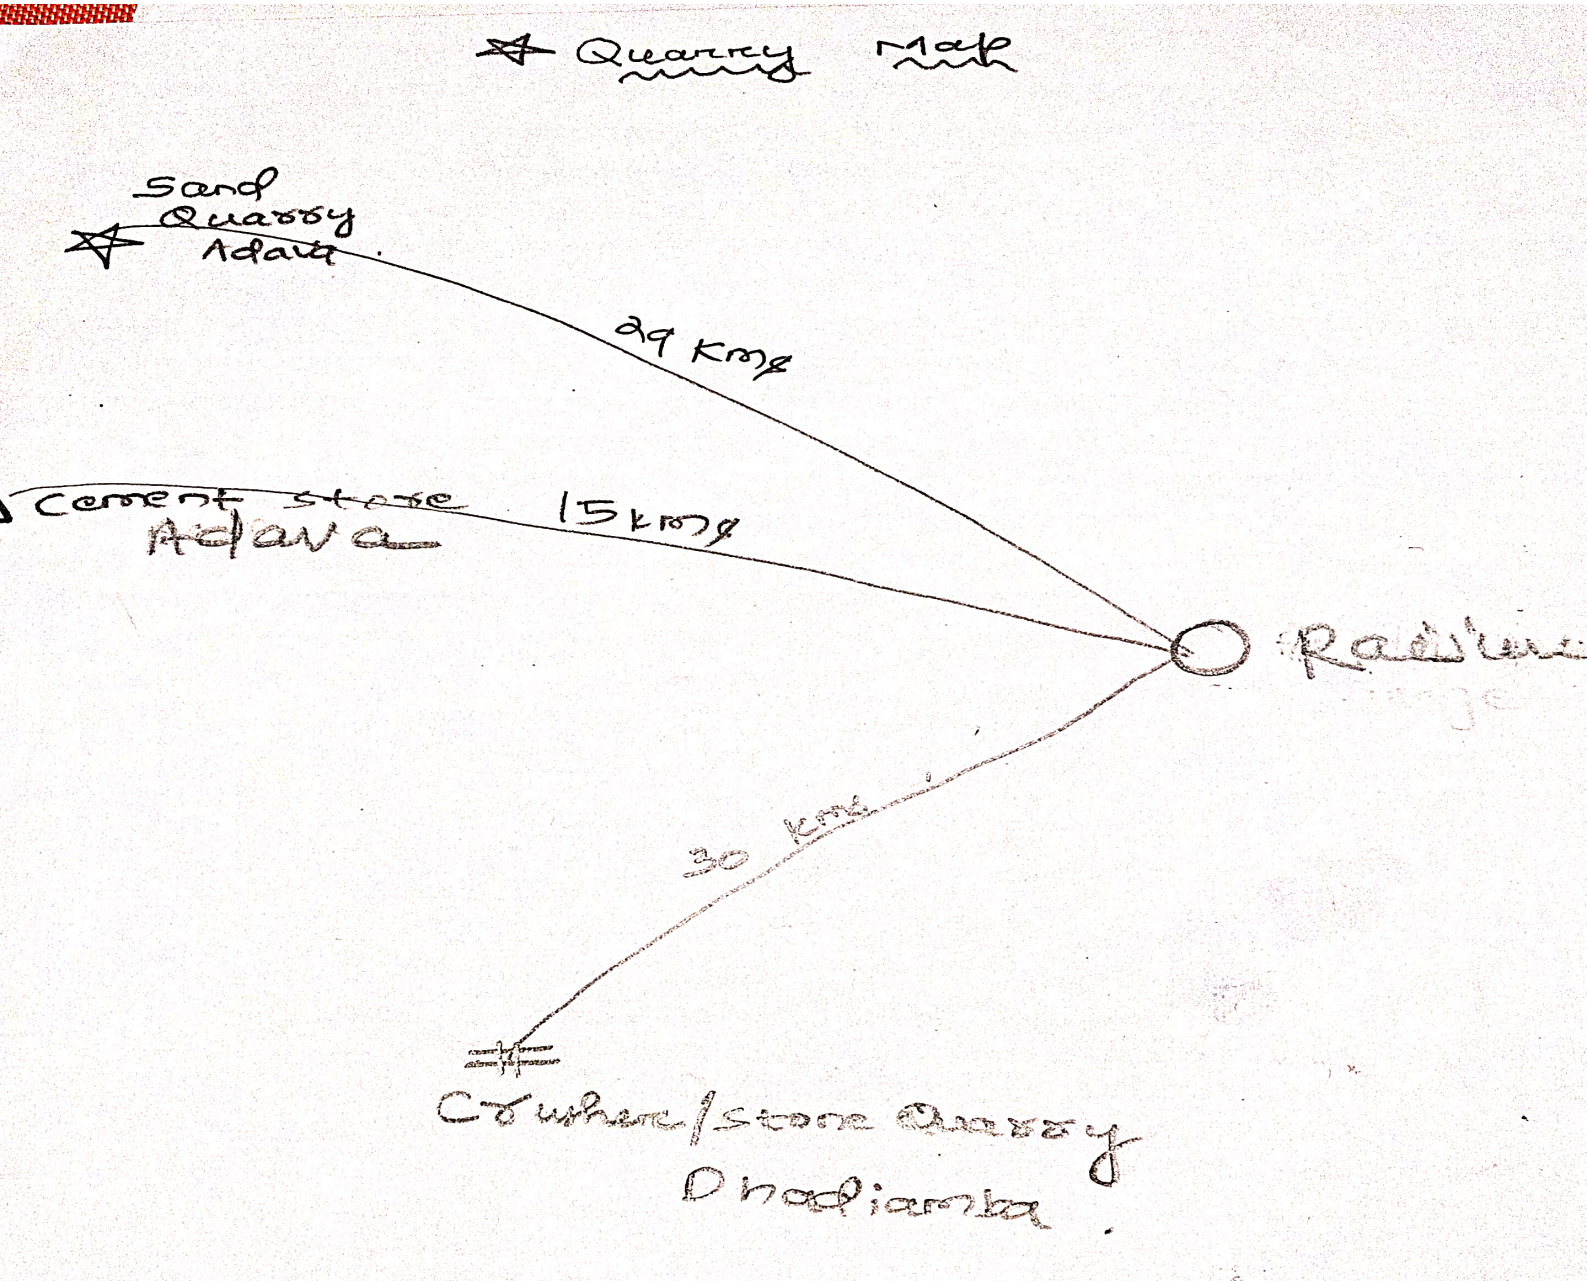 Quarry Map
Sand
Quarry
Adava
29 Kms
Cement store
Adava
15 kms
30 kms
Crusher/Stone Quarry
Dhadiamba